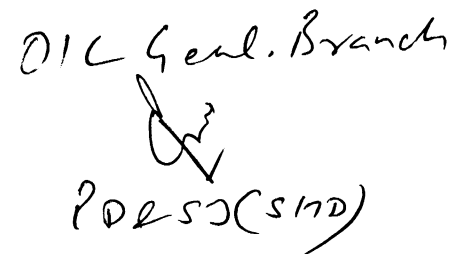 OIC Genl. Branch
PD&SJ(SMD)